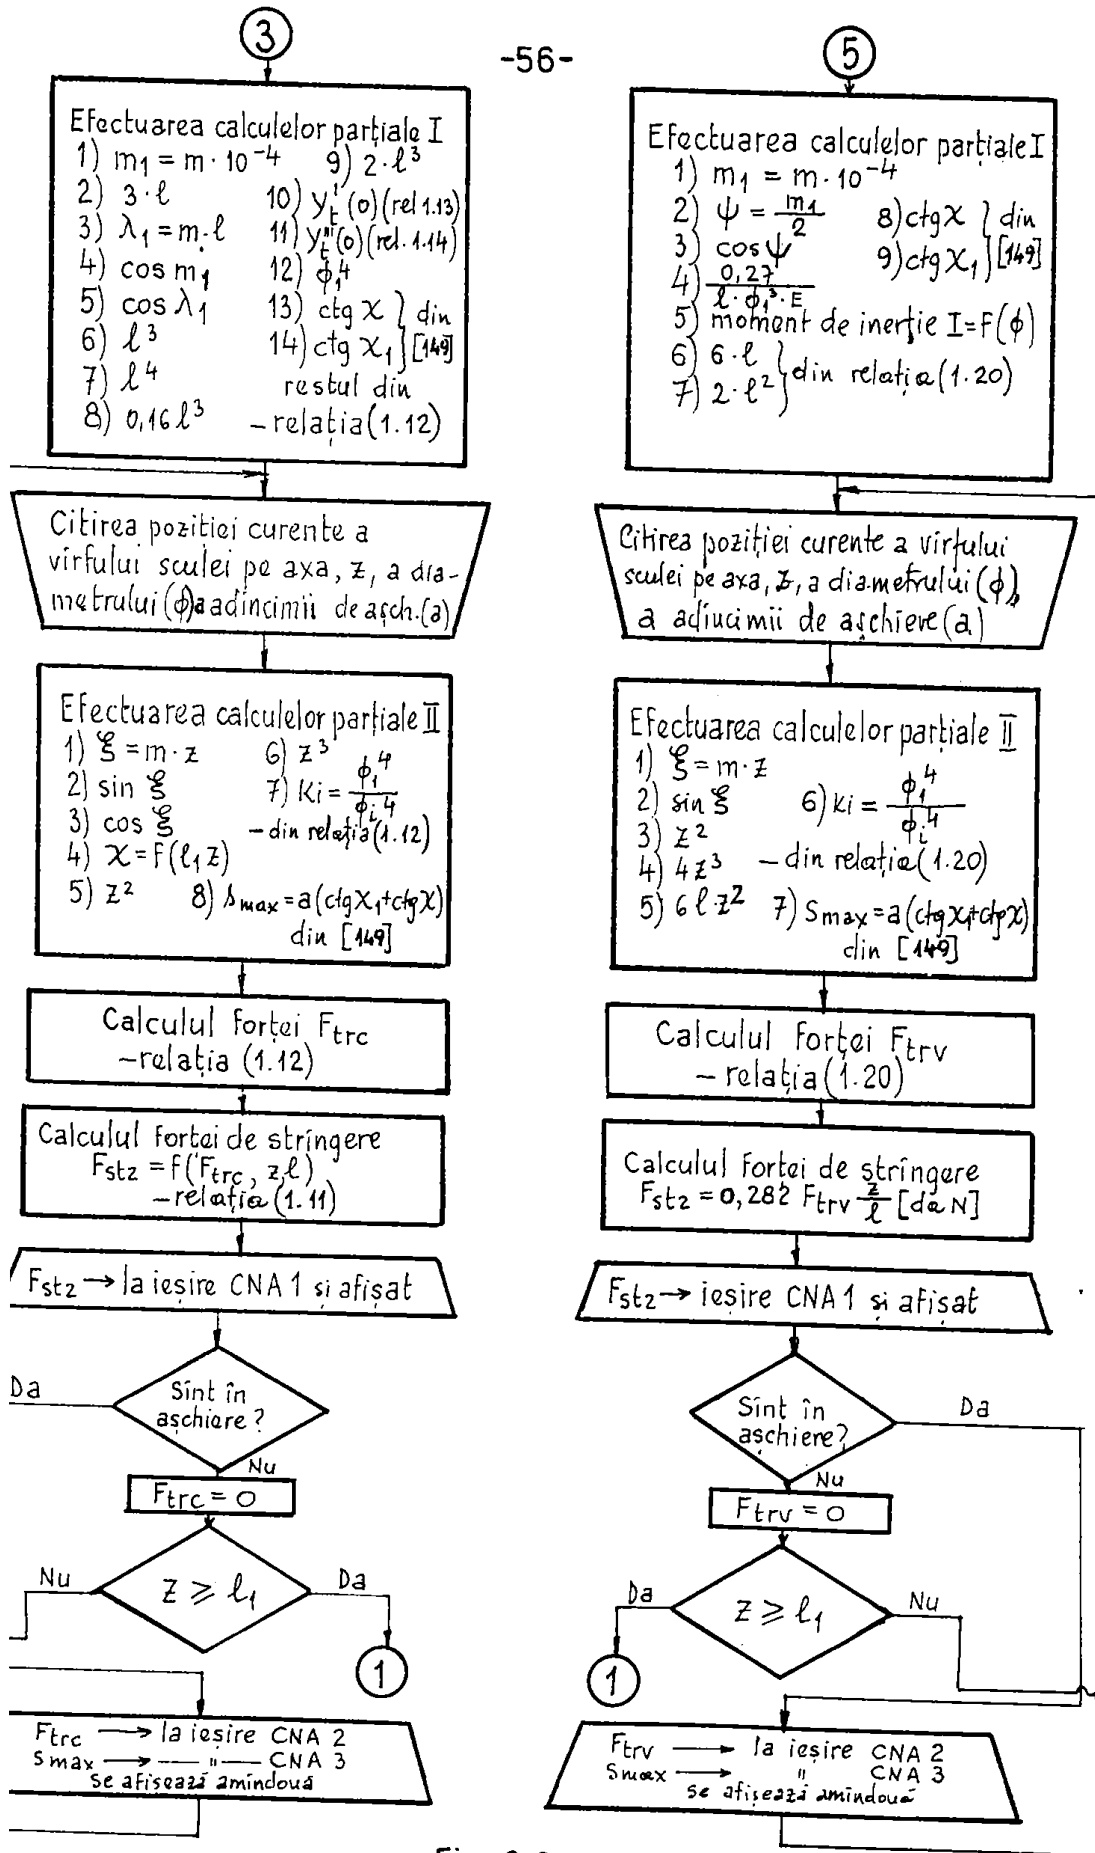 -56-
3
Efectuarea calculelor parțiale I
1) m₁ = m · 10⁻⁴ 9) 2·ℓ³
2) 3·ℓ 10) y't(0) (rel 1.13)
3) λ₁ = m·ℓ 11) y'''t(0) (rel. 1.14)
4) cos m₁ 12) ϕ₁⁴
5) cos λ₁ 13) ctg χ } din
6) ℓ³ 14) ctg χ₁ } [149]
7) ℓ⁴ restul din
8) 0,16ℓ³ – relația (1.12)
Citirea pozitiei curente a
vîrfului sculei pe axa, z, a dia-
metrului (ϕ) a adîncimii de așch. (a)
Efectuarea calculelor parțiale II
1) ξ = m · z 6) z³
2) sin ξ 7) Ki = ϕ₁⁴/ϕi⁴
3) cos ξ – din relația (1.12)
4) χ = f(ℓ₁ z)
5) z² 8) smax = a (ctgχ₁+ctgχ)
din [149]
Calculul forței Ftrc
– relația (1.12)
Calculul fortei de strîngere
Fst2 = f(Ftrc, z,ℓ)
– relația (1.11)
Fst2 → la ieșire CNA 1 și afișat
Sînt în
așchiere?
Da
Nu
Ftrc = 0
z ⩾ ℓ₁
Nu
Da
1
Ftrc → la ieșire CNA 2
smax → — " — CNA 3
se afișează amîndouă
5
Efectuarea calculelor parțiale I
1) m₁ = m · 10⁻⁴
2) ψ = m₁/2 8) ctg χ } din
3) cos ψ 9) ctg χ₁ } [149]
4) 0,27/ℓ·ϕ₁³·E
5) moment de inerție I=f(ϕ)
6) 6·ℓ } din relația (1.20)
7) 2·ℓ² }
Citirea poziției curente a vîrfului
sculei pe axa, z, a diametrului (ϕ),
a adîncimii de așchiere (a)
Efectuarea calculelor parțiale II
1) ξ = m · z
2) sin ξ 6) ki = ϕ₁⁴/ϕi⁴
3) z²
4) 4z³ – din relația (1.20)
5) 6ℓ·z² 7) Smax = a (ctgχ₁+ctgχ)
din [149]
Calculul forței Ftrv
– relația (1.20)
Calculul fortei de strîngere
Fst2 = 0,282 Ftrv z/ℓ [daN]
Fst2 → ieșire CNA 1 și afișat
Sînt în
așchiere?
Da
Nu
Ftrv = 0
z ⩾ ℓ₁
Da
Nu
1
Ftrv → la ieșire CNA 2
smax → " CNA 3
se afișează amîndouă